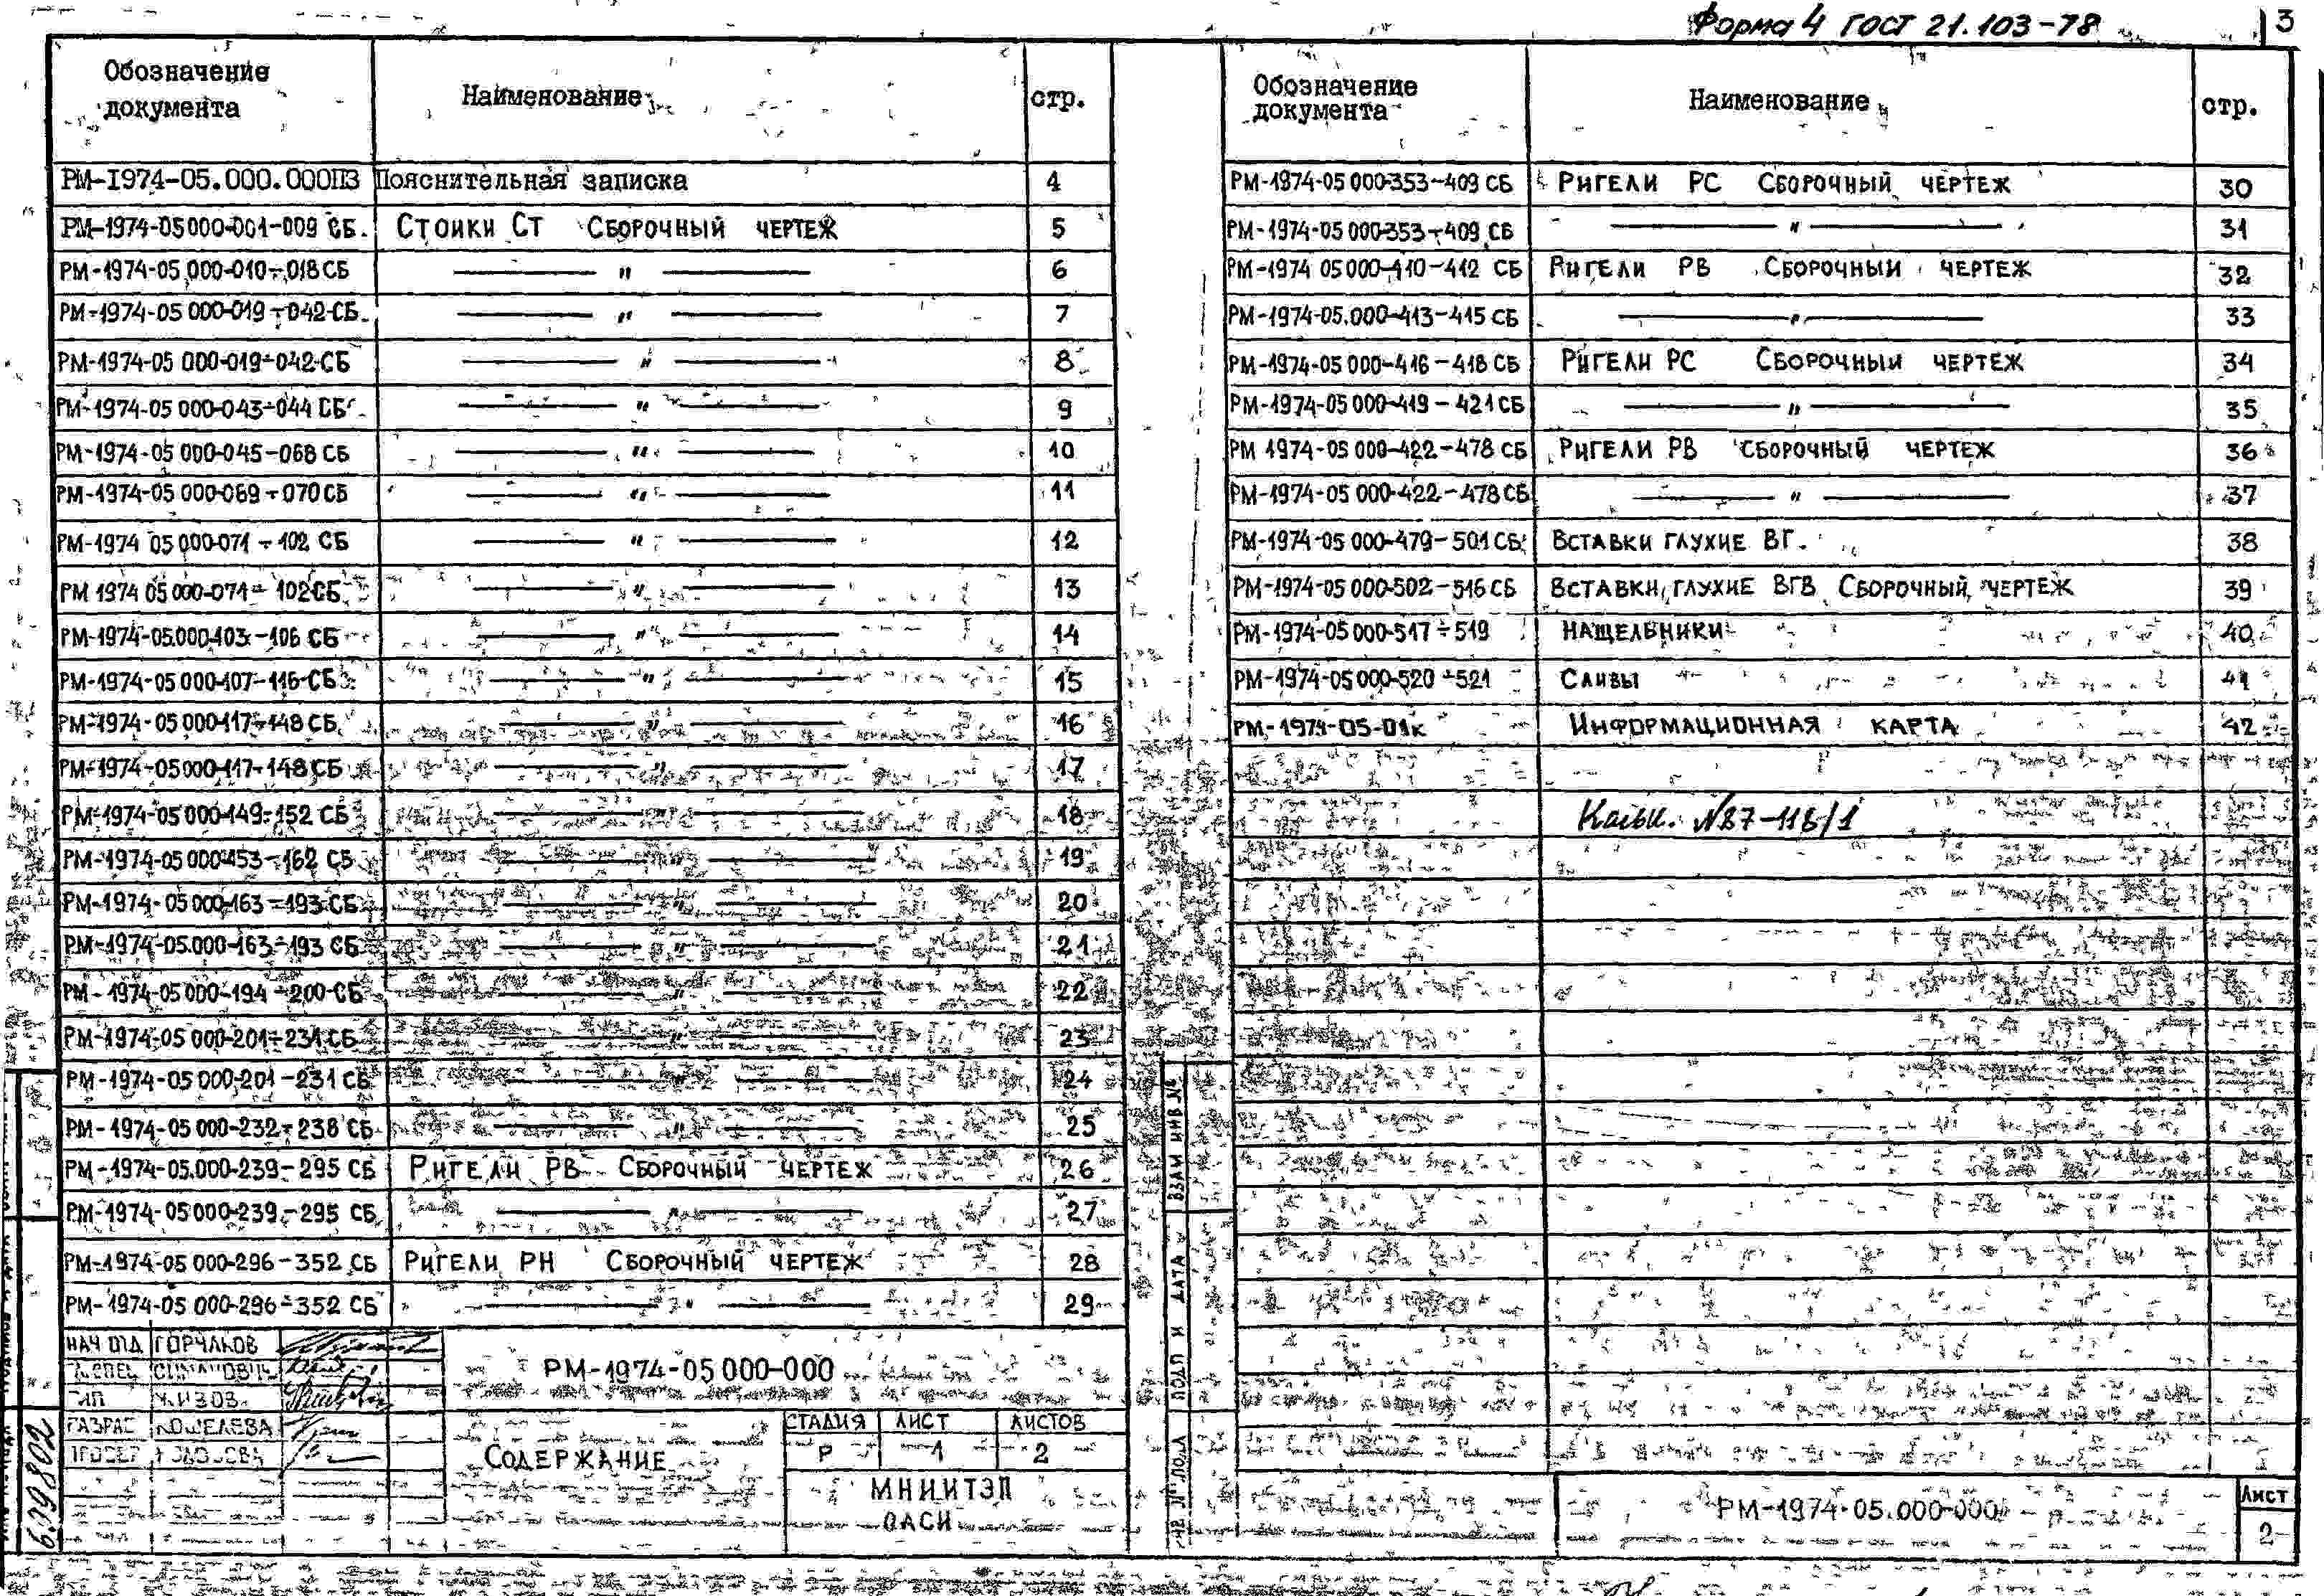 Форма 4 ГОСТ 21.103-78
3
Обозначение документа Наименование стр.
РМ-1974-05.000.000ПЗ Пояснительная записка 4
РМ-1974-05000-001-009 СБ. Стойки СТ Сборочный чертеж 5
РМ-1974-05.000-010÷018 СБ — " — 6
РМ-1974-05 000-019÷042 СБ. — " — 7
РМ-1974-05 000-019÷042 СБ — " — 8
РМ-1974-05 000-043÷044 СБ — " — 9
РМ-1974-05 000-045-068 СБ — " — 10
РМ-1974-05 000-069÷070 СБ — " — 11
РМ-1974 05 000-071÷102 СБ — " — 12
РМ 1974 05 000-071÷102 СБ — " — 13
РМ-1974-05.000-103-106 СБ — " — 14
РМ-1974-05 000-107-116 СБ — " — 15
РМ-1974-05 000-117÷148 СБ — " — 16
РМ-1974-05000-117-148 СБ — " — 17
РМ-1974-05 000-149÷152 СБ — " — 18
РМ-1974-05 000-153-162 СБ — " — 19
РМ-1974-05 000-163-193 СБ — " — 20
РМ-1974-05.000-163÷193 СБ — " — 21
РМ-1974-05 000-194÷200 СБ — " — 22
РМ-1974-05 000-201÷231 СБ — " — 23
РМ-1974-05 000-201-231 СБ — " — 24
РМ-1974-05 000-232÷238 СБ — " — 25
РМ-1974-05.000-239-295 СБ Ригели РВ Сборочный чертеж 26
РМ-1974-05 000-239-295 СБ — " — 27
РМ-1974-05 000-296-352 СБ Ригели РН Сборочный чертеж 28
РМ-1974-05 000-296÷352 СБ — " — 29
НАЧ ОТД ГОРЧАКОВ
ГИП
РАЗРАБ КОШЕЛЕВА
РМ-1974-05 000-000
Содержание
СТАДИЯ ЛИСТ ЛИСТОВ
Р 1 2
МНИИТЭП
ОАСИ
699802
Обозначение документа Наименование стр.
РМ-1974-05 000-353-409 СБ Ригели РС Сборочный чертеж 30
РМ-1974-05 000-353÷409 СБ — " — 31
РМ-1974 05000-410-412 СБ Ригели РВ Сборочный чертеж 32
РМ-1974-05.000-413-415 СБ — " — 33
РМ-1974-05 000-416-418 СБ Ригели РС Сборочный чертеж 34
РМ-1974-05 000-419-421 СБ — " — 35
РМ 1974-05 000-422-478 СБ Ригели РВ Сборочный чертеж 36
РМ-1974-05 000-422-478 СБ — " — 37
РМ-1974-05 000-479-501 СБ Вставки глухие ВГ. 38
РМ-1974-05 000-502-516 СБ Вставки глухие ВГВ Сборочный чертеж 39
РМ-1974-05 000-517÷519 Нащельники 40
РМ-1974-05 000-520÷521 Сливы 41
РМ-1974-05-01к Информационная карта 42
Кальк. №87-116/1
ВЗАМ ИНВ №
ПОДП И ДАТА
ИНВ. № ПОДЛ
РМ-1974-05.000-000
Лист
2